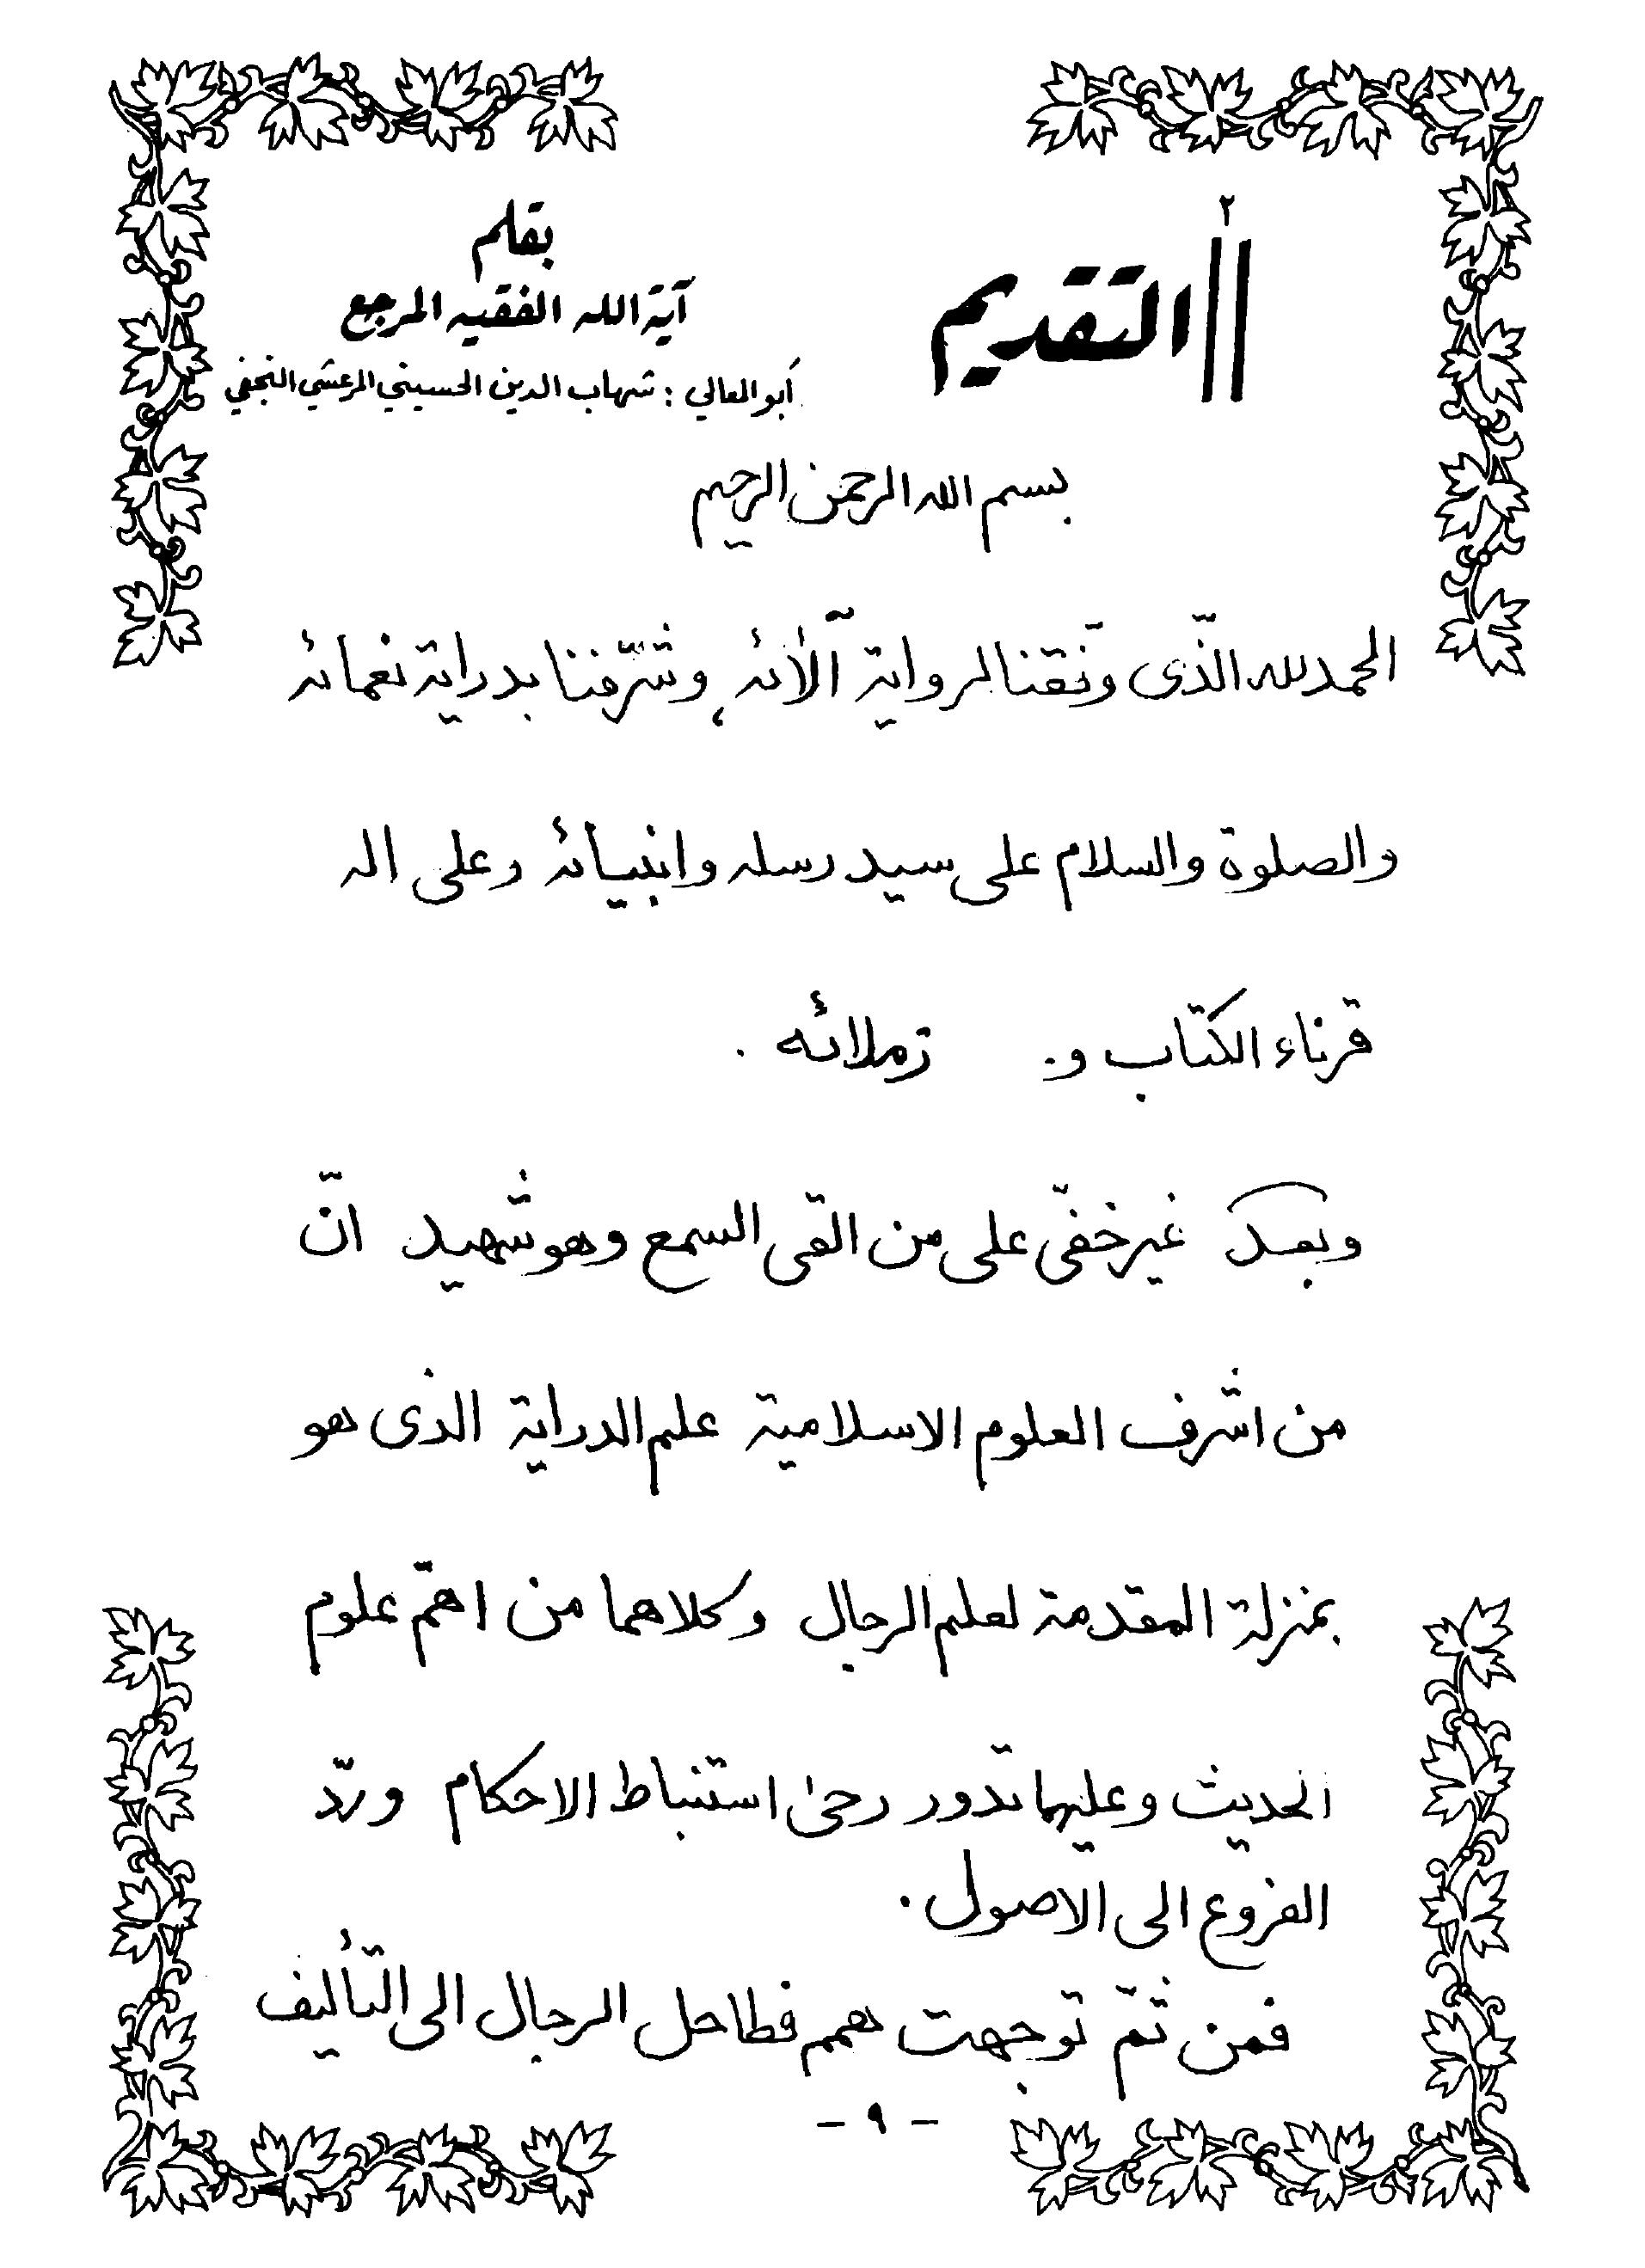 ٢
التقديم
بقلم
آية الله الفقيه المرجع
أبو المعالي : شهاب الدين الحسيني المرعشي النجفي
بسم الله الرحمن الرحيم
الحمد لله الذّى وفّقنا لرواية آلائه ، وشرّفنا بدراية نعمائه
والصلوة والسلام على سيد رسله وانبيائه وعلى اله
قرناء الكتاب و زملائه .
وبعد غير خفىّ على من القى السمع وهو شهيد انّ
من اشرف العلوم الاسلامية علم الدراية الذى هو
بمنزلة المقدمة لعلم الرجال وكلاهما من اهمّ علوم
الحديث وعليهما تدور رحى استنباط الاحكام وردّ
الفروع الى الاصول .
فمن ثمّ توجهت همم فطاحل الرجال الى التّأليف
- ٩ -